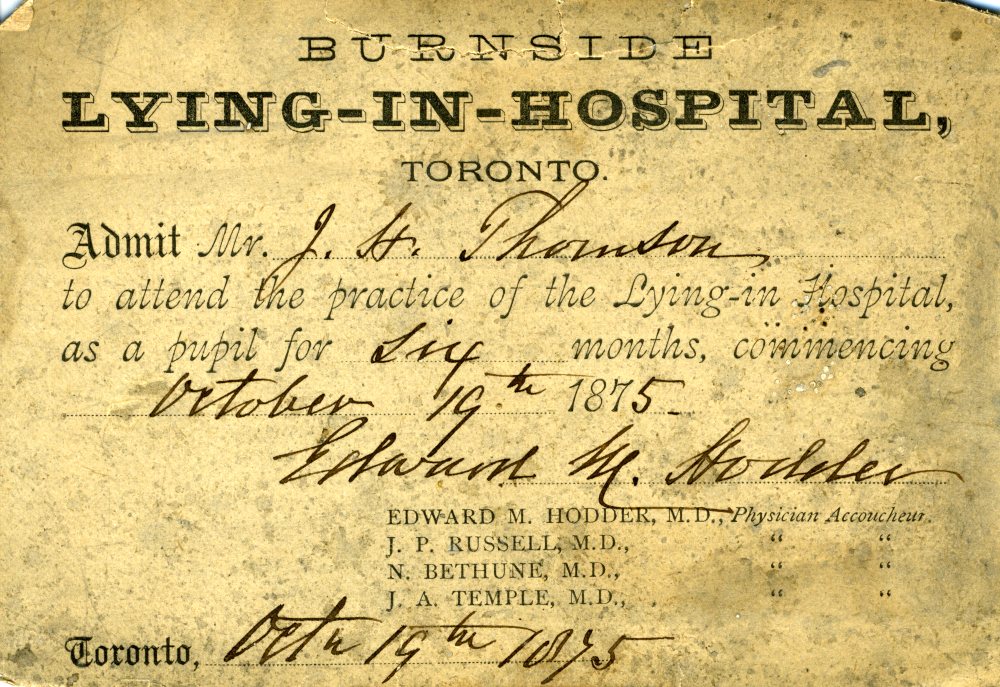 BURNSIDE
LYING-IN-HOSPITAL,
TORONTO.
Admit Mr. J. H. Thomson
to attend the practice of the Lying-in Hospital,
as a pupil for six months, commencing
October 19th 1875.
Edward M. Hodder
EDWARD M. HODDER, M.D., Physician Accoucheur.
J. P. RUSSELL, M.D., “ “
N. BETHUNE, M.D., “ “
J. A. TEMPLE, M.D., “ “
Toronto, Octr 19th 1875